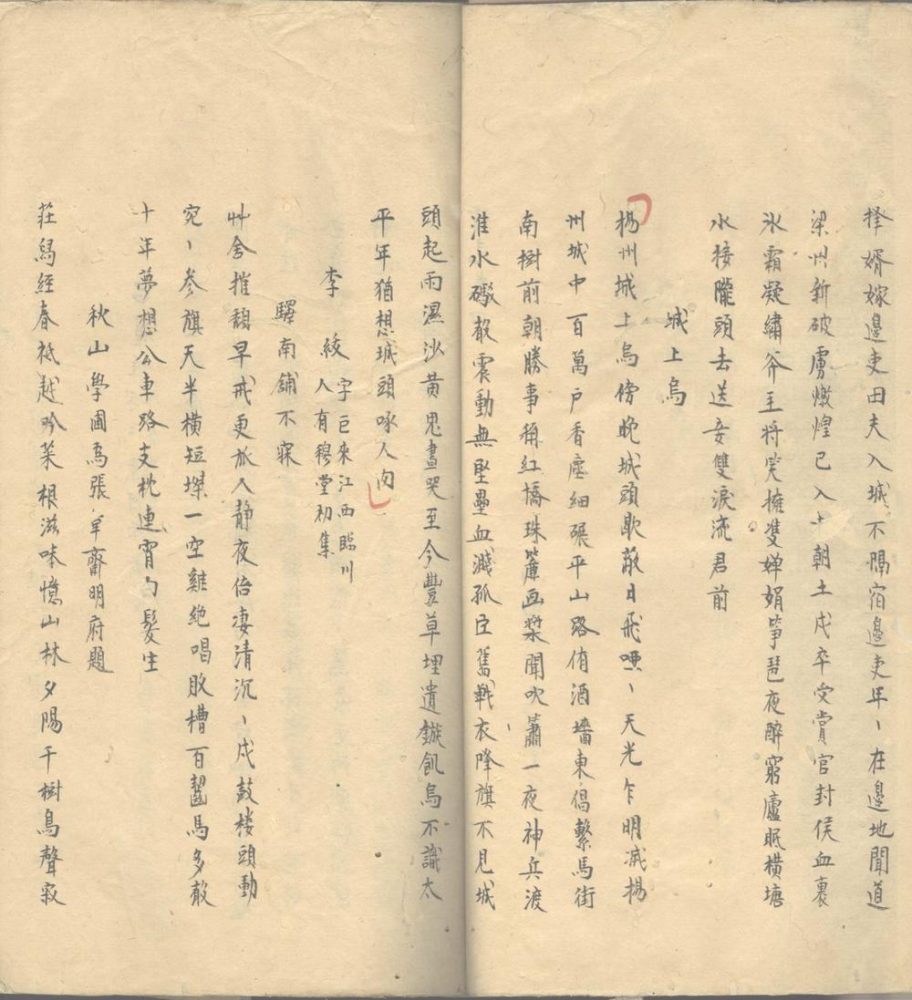 擇婿嫁邊吏田夫入城不隔宿邊吏年丶在邊地聞道
梁州新破虜燉煌已入十朝土戍卒受賞官封侯血裹
氷霜凝繡斧主将笑擁雙嬋娟筝琶夜醉窮廬眠横塘
水接隴頭去送妾雙淚流君前
城上烏
楊州城上烏傍晚城頭歇蔽日飛啞丶天光乍明滅揚
州城中百萬戶香塵細碾平山路侑酒墻東倡繫馬街
南樹前朝勝事稱紅橋珠簾画槳聞吹簫一夜神兵渡
淮水礮聲震動無堅壘血濺孤臣舊戰衣降旗不見城
頭起雨濕沙黄鬼晝哭至今豐草埋遺鏃飢烏不識太
平年猶想城頭啄人肉
李紱 字巨來江西臨川人有穆堂初集
驛南舖不寐
艸舍摧頽早戒更旅人静夜倍凄清沉丶戍鼓楼頭動
宛丶参旗天半横短堞一空雞絶唱敗槽百齧馬多聲
十年夢想公車路支枕連宵白髪生
秋山學圃為張 齋明府題
莊舄經春祗越吟菜根滋味憶山林夕陽千樹鳥聲寂